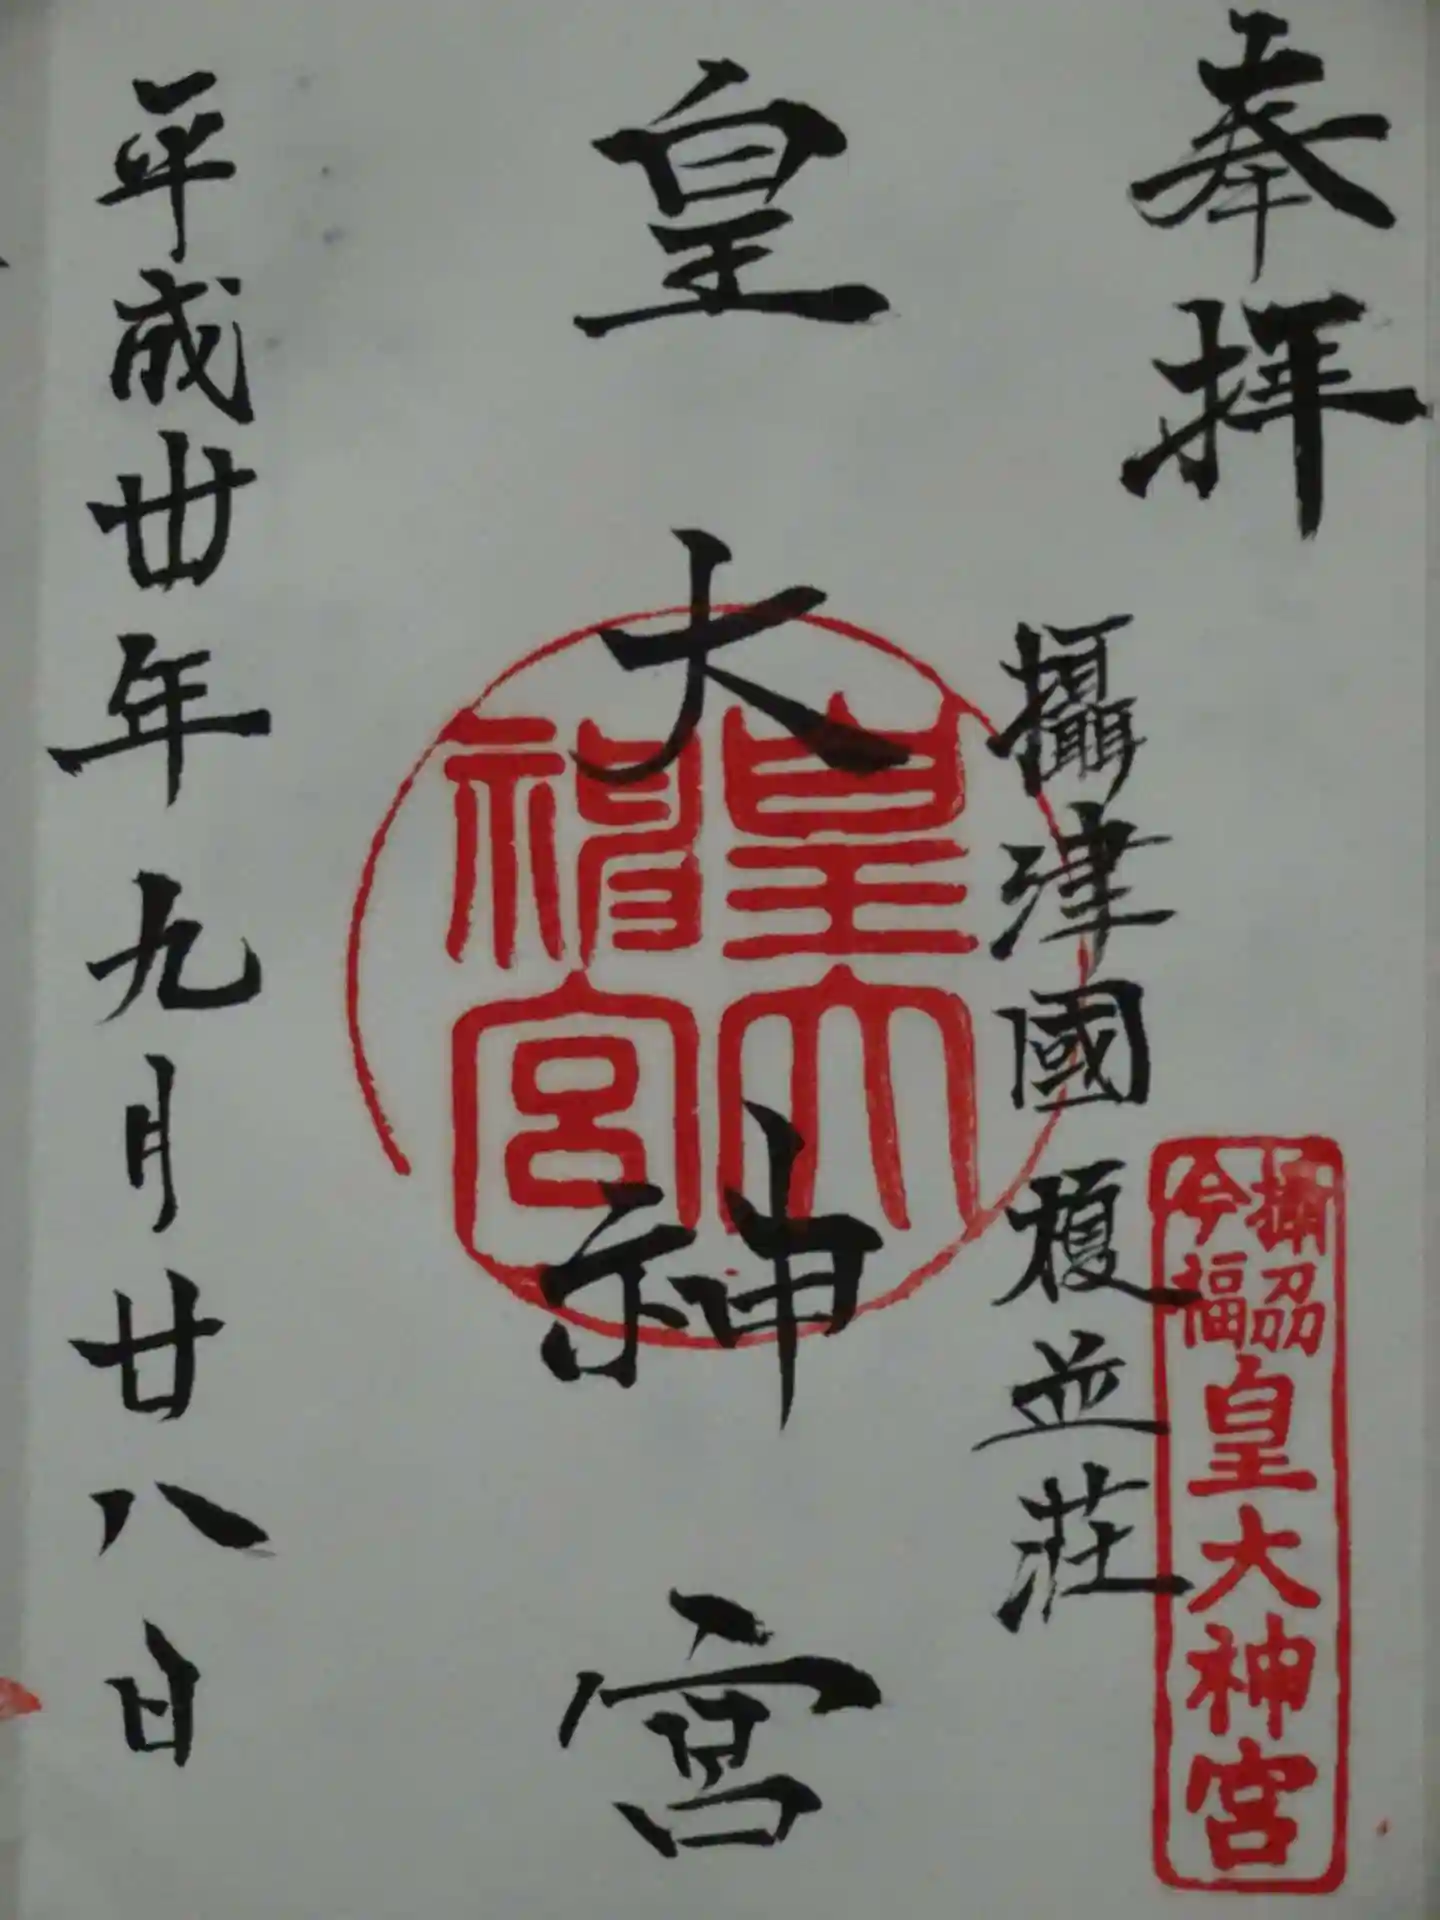 奉拝
攝津國 榎並莊
攝州
今福
皇大神宮
皇大神宮
皇大神宮
平成卅年九月廿八日